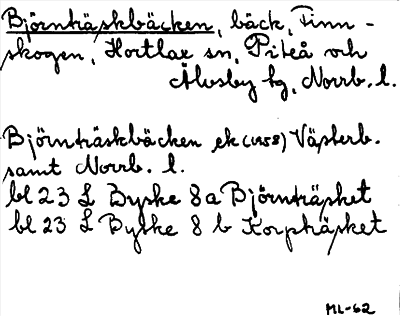 Björnträskbäcken, bäck, Finn-
skogen, Hortlax sn, Piteå och
Älvsby tg, Norrb. l.
Björnträskbäcken ek (1958) Västerb.
samt Norrb. l.
bl 23 L Byske 8a Björnträsket
bl 23 L Byske 8 b Korpträsket
ML-62